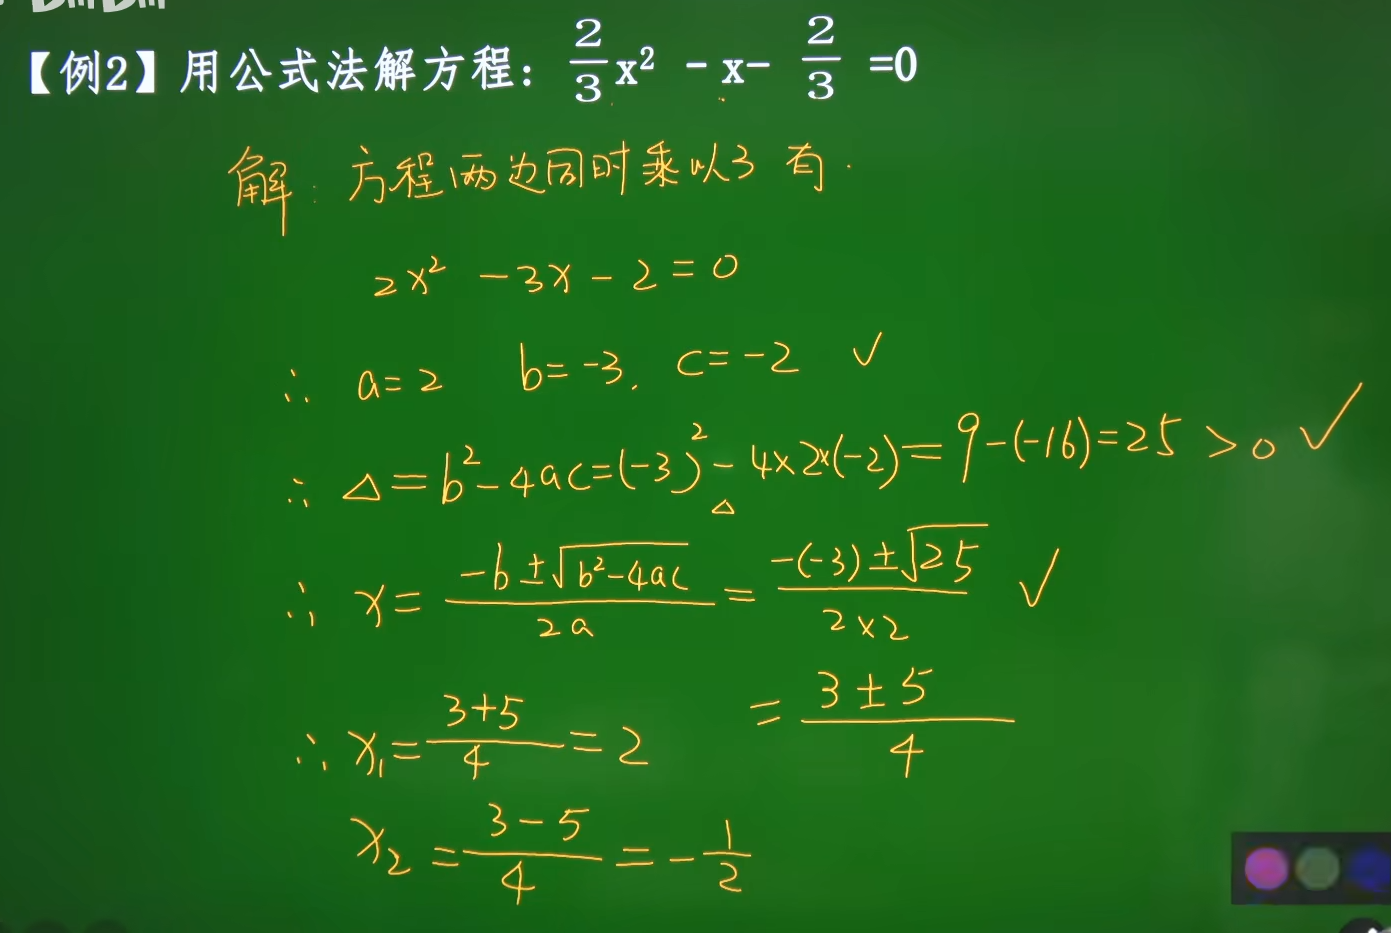 【例2】用公式法解方程： 2/3 x² - x - 2/3 =0
解：方程两边同时乘以3 有.
2x² -3x -2 = 0
∴ a=2 b=-3, c=-2 ✓
∴ △=b²-4ac=(-3)²-4×2×(-2)=9-(-16)=25>0 ✓
△
∴ x= (-b±√(b²-4ac))/(2a) = (-(-3)±√25)/(2×2) ✓
= (3±5)/4
∴ x₁= (3+5)/4 =2
x₂ = (3-5)/4 = -1/2